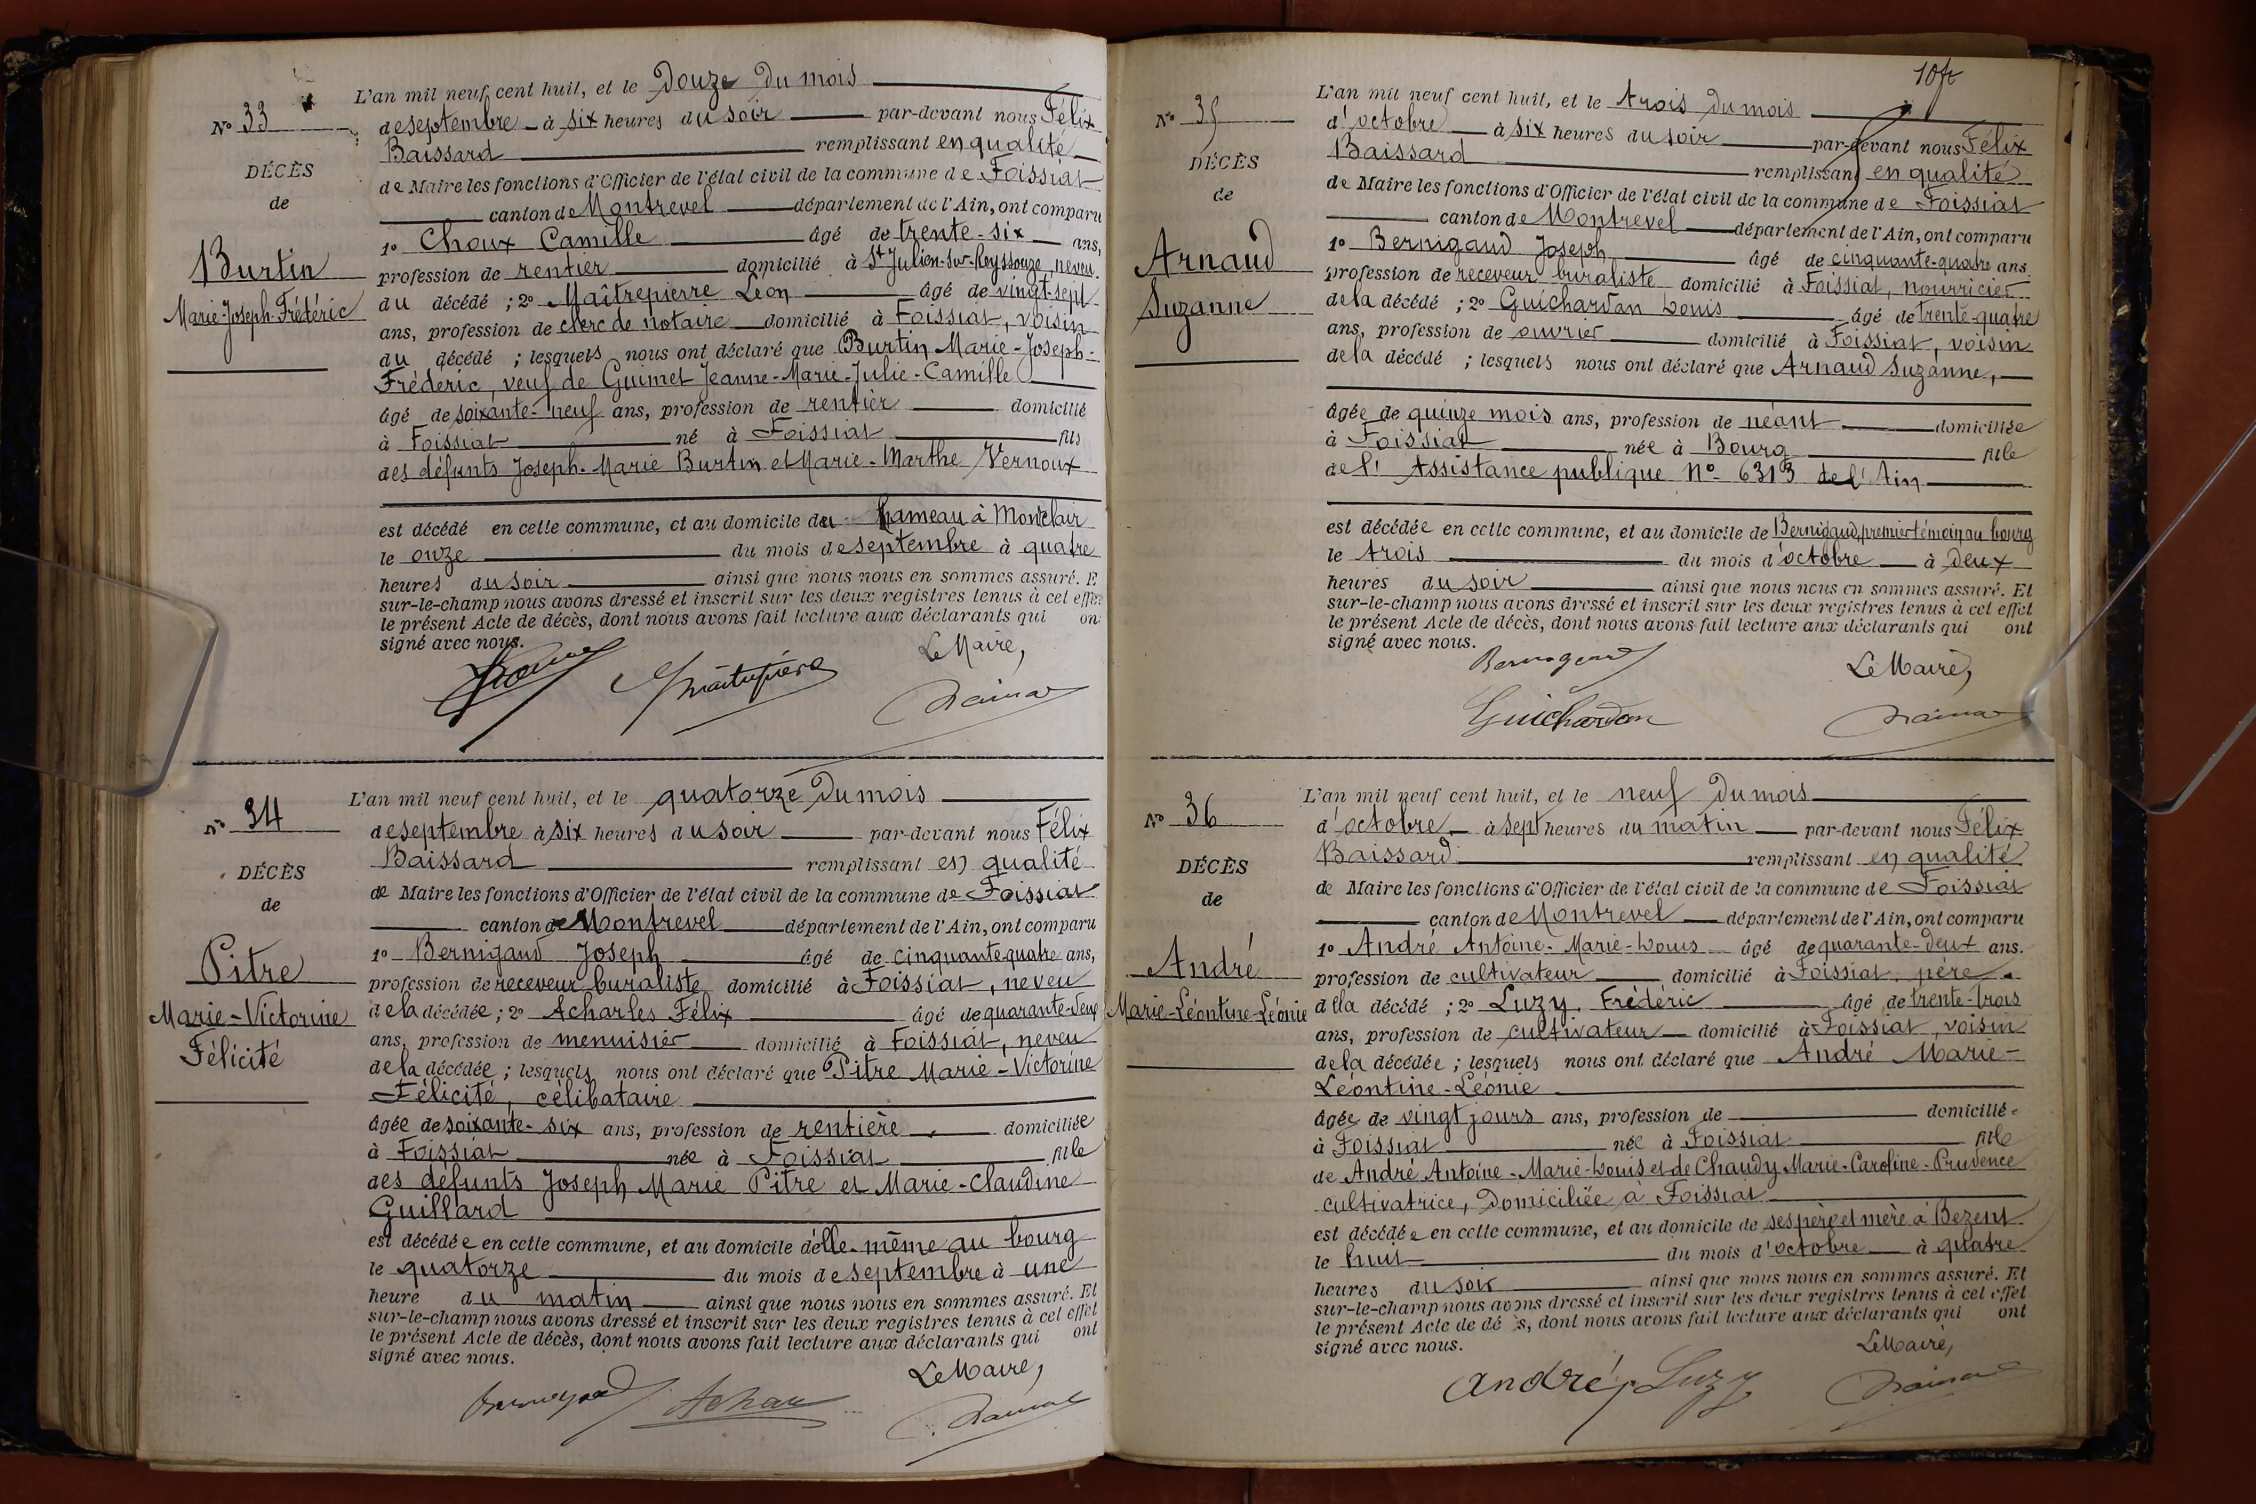 N° 33
DÉCÈS
de
Burtin
Marie-Joseph-Frédéric
L'an mil neuf cent huit, et le Douze du mois
de septembre à six heures du soir par-devant nous Félix
Baissard remplissant en qualité
de Maire les fonctions d'Officier de l'état civil de la commune de Foissiat
canton de Montrevel département de l'Ain, ont comparu
1° Choux Camille âgé de trente-six ans,
profession de rentier domicilié à St Julien-sur-Reyssouze, neveu
du décédé ; 2° Maîtrepierre Léon âgé de vingt-sept
ans, profession de clerc de notaire domicilié à Foissiat, voisin
du décédé ; lesquels nous ont déclaré que Burtin Marie-Joseph-
Fréderic, veuf de Guimet Jeanne-Marie-Julie-Camille
âgé de soixante-neuf ans, profession de rentier domicilié
à Foissiat né à Foissiat fils
des défunts Joseph-Marie Burtin et Marie-Marthe Vernoux
est décédé en cette commune, et au domicile du hameau à Montclair
le onze du mois de septembre à quatre
heures du soir ainsi que nous nous en sommes assuré. E
sur-le-champ nous avons dressé et inscrit sur les deux registres tenus à cet effet
le présent Acte de décès, dont nous avons fait lecture aux déclarants qui on
signé avec nous.
Le Maire,
Maîtrepierre
N° 34
DÉCÈS
de
Pitre
Marie-Victorine
Félicité
L'an mil neuf cent huit, et le quatorze du mois
de septembre à six heures du soir par-devant nous Félix
Baissard remplissant en qualité
de Maire les fonctions d'Officier de l'état civil de la commune de Foissiat
canton de Montrevel département de l'Ain, ont comparu
1° Bernigaud Joseph âgé de cinquante-quatre ans,
profession de receveur buraliste domicilié à Foissiat, neveu
de la décédée ; 2° Acharles Félix âgé de quarante-deux
ans, profession de menuisier domicilié à Foissiat, neveu
de la décédée ; lesquels nous ont déclaré que Pitre Marie-Victorine
Félicité, célibataire
âgée de soixante-six ans, profession de rentière domiciliée
à Foissiat née à Foissiat fille
des défunts Joseph Marie Pitre et Marie-Claudine
Guillard
est décédée en cette commune, et au domicile d'elle-même au bourg
le quatorze du mois de septembre à une
heure du matin ainsi que nous nous en sommes assuré. Et
sur-le-champ nous avons dressé et inscrit sur les deux registres tenus à cet effet
le présent Acte de décès, dont nous avons fait lecture aux déclarants qui ont
signé avec nous.
Le Maire,
10fr
N° 35
DÉCÈS
de
Arnaud
Suzanne
L'an mil neuf cent huit, et le trois du mois
d'octobre à six heures du soir par-devant nous Félix
Baissard remplissant en qualité
de Maire les fonctions d'Officier de l'état civil de la commune de Foissiat
canton de Montrevel département de l'Ain, ont comparu
1° Bernigaud Joseph âgé de cinquante-quatre ans
profession de receveur buraliste domicilié à Foissiat, nourricier
de la décédé ; 2° Guichardan Louis âgé de trente-quatre
ans, profession de ouvrier domicilié à Foissiat, voisin
de la décédé ; lesquels nous ont déclaré que Arnaud Suzanne,
âgée de quinze mois ans, profession de néant domiciliée
à Foissiat née à Bourg fille
de l'Assistance publique N° 6313 de l'Ain
est décédée en cette commune, et au domicile de Bernigaud, premier témoin au bourg
le trois du mois d'octobre à deux
heures du soir ainsi que nous nous en sommes assuré. Et
sur-le-champ nous avons dressé et inscrit sur les deux registres tenus à cet effet
le présent Acte de décès, dont nous avons fait lecture aux déclarants qui ont
signé avec nous.
Le Maire,
Guichardan
N° 36
DÉCÈS
de
André
Marie-Léontine-Léonie
L'an mil neuf cent huit, et le neuf du mois
d'octobre à sept heures du matin par-devant nous Félix
Baissard remplissant en qualité
de Maire les fonctions d'Officier de l'état civil de la commune de Foissiat
canton de Montrevel département de l'Ain, ont comparu
1° André Antoine-Marie-Louis âgé de quarante-deux ans.
profession de cultivateur domicilié à Foissiat, père
de la décédé ; 2° Luzy, Frédéric âgé de trente-trois
ans, profession de cultivateur domicilié à Foissiat, voisin
de la décédée ; lesquels nous ont déclaré que André Marie-
Léontine-Léonie
âgée de vingt jours ans, profession de domiciliée
à Foissiat née à Foissiat fille
de André Antoine-Marie-Louis et de Chaudy Marie-Caroline-Prudence
cultivatrice, domiciliée à Foissiat
est décédée en cette commune, et au domicile de ses père et mère à Bezent
le huit du mois d'octobre à quatre
heures du soir ainsi que nous nous en sommes assuré. Et
sur-le-champ nous avons dressé et inscrit sur les deux registres tenus à cet effet
le présent Acte de décès, dont nous avons fait lecture aux déclarants qui ont
signé avec nous.
Le Maire,
André Luzy